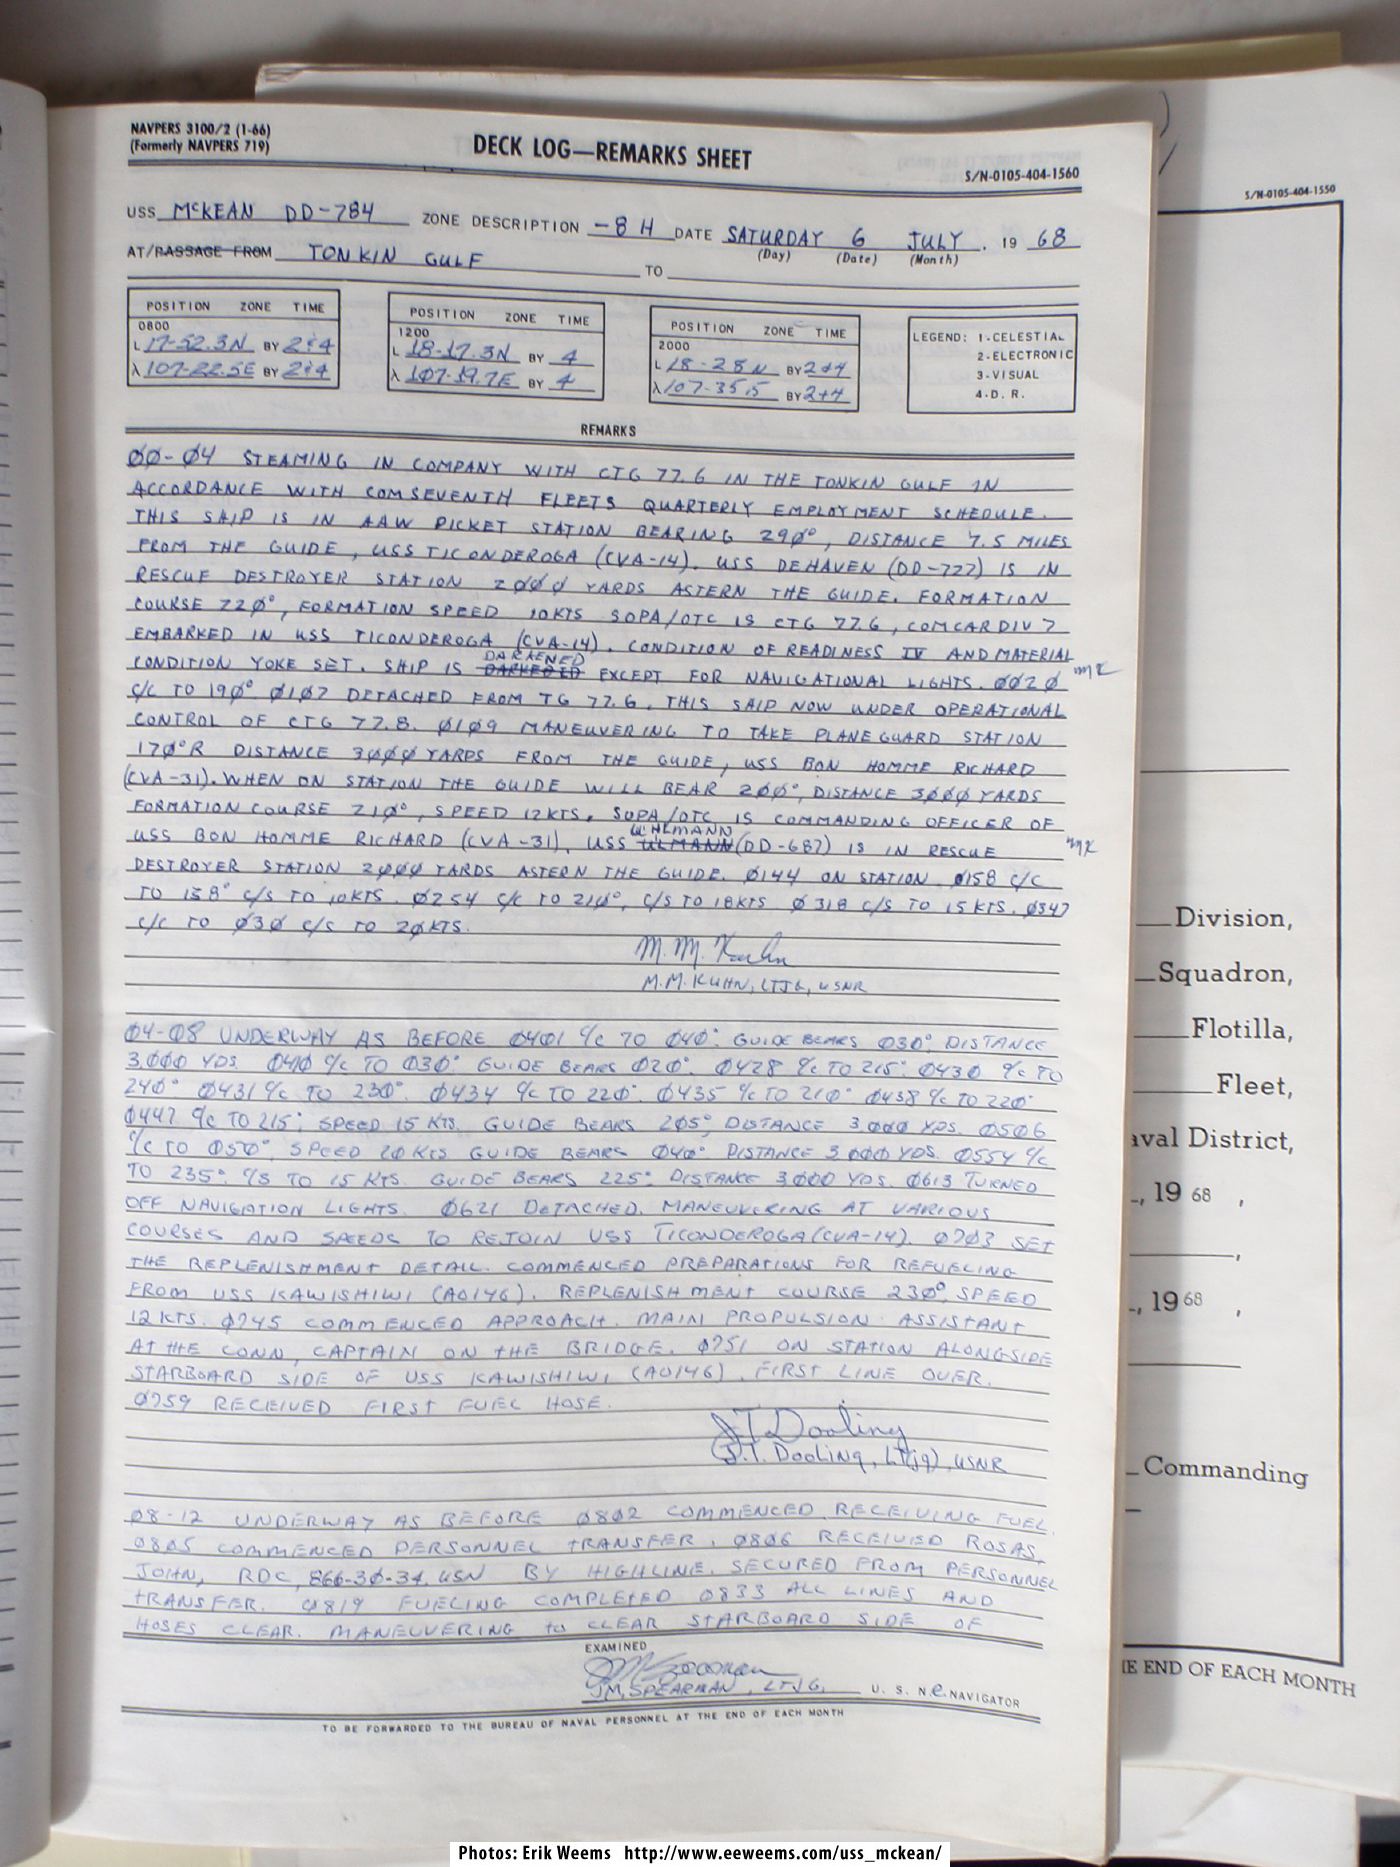 NAVPERS 3100/2 (1-66)
(Formerly NAVPERS 719)
DECK LOG—REMARKS SHEET
S/N-0105-404-1560
USS McKEAN DD-784 ZONE DESCRIPTION -8 H DATE SATURDAY 6 JULY, 19 68
(Day) (Date) (Month)
AT/PASSAGE FROM TONKIN GULF TO
POSITION ZONE TIME
0800
L 17-52.3N BY 2+4
λ 107-22.5E BY 2+4
POSITION ZONE TIME
1200
L 18-17.3N BY 4
λ 107-19.7E BY 4
POSITION ZONE TIME
2000
L 18-28N BY 2+4
λ 107-35.5 BY 2+4
LEGEND: 1-CELESTIAL
2-ELECTRONIC
3-VISUAL
4-D. R.
REMARKS
00-04 STEAMING IN COMPANY WITH CTG 77.6 IN THE TONKIN GULF IN
ACCORDANCE WITH COMSEVENTH FLEETS QUARTERLY EMPLOYMENT SCHEDULE.
THIS SHIP IS IN AAW PICKET STATION BEARING 290°, DISTANCE 7.5 MILES
FROM THE GUIDE, USS TICONDEROGA (CVA-14). USS DEHAVEN (DD-727) IS IN
RESCUE DESTROYER STATION 2000 YARDS ASTERN THE GUIDE. FORMATION
COURSE 220°, FORMATION SPEED 10KTS SOPA/OTC IS CTG 77.6, COMCARDIV 7
EMBARKED IN USS TICONDEROGA (CVA-14). CONDITION OF READINESS IV AND MATERIAL
CONDITION YOKE SET. SHIP IS DARKENED EXCEPT FOR NAVIGATIONAL LIGHTS. 0020 MK
C/C TO 190°. 0107 DETACHED FROM TG 77.6. THIS SHIP NOW UNDER OPERATIONAL
CONTROL OF CTG 77.8. 0109 MANEUVERING TO TAKE PLANEGUARD STATION
170°R DISTANCE 3000 YARDS FROM THE GUIDE, USS BON HOMME RICHARD
(CVA-31). WHEN ON STATION THE GUIDE WILL BEAR 200°, DISTANCE 3000 YARDS
FORMATION COURSE 210°, SPEED 12KTS. SOPA/OTC IS COMMANDING OFFICER OF
USS BON HOMME RICHARD (CVA-31). USS ULMANN UHLMANN (DD-687) IS IN RESCUE MK
DESTROYER STATION 2000 YARDS ASTERN THE GUIDE. 0144 ON STATION. 0158 C/C
TO 158° C/S TO 10KTS. 0254 C/C TO 210°, C/S TO 18KTS 0318 C/S TO 15 KTS. 0347
C/C TO 030 C/S TO 20KTS.
M. M. Kuhn
M.M. KUHN, LTJG, USNR
04-08 UNDERWAY AS BEFORE 0401 C/C TO 040°. GUIDE BEARS 030°, DISTANCE
3,000 YDS. 0410 C/C TO 030° GUIDE BEARS 020°. 0428 C/C TO 215° 0430 C/C TO
240° 0431 C/C TO 230°. 0434 C/C TO 220°. 0435 C/C TO 210° 0438 C/C TO 220°
0447 C/C TO 215°, SPEED 15 KTS. GUIDE BEARS 205°, DISTANCE 3,000 YDS. 0506
C/C TO 050°, SPEED 20 KTS GUIDE BEARS 040° DISTANCE 3000 YDS. 0554 C/C
TO 235°. C/S TO 15 KTS. GUIDE BEARS 225° DISTANCE 3,000 YDS. 0613 TURNED
OFF NAVIGATION LIGHTS. 0621 DETACHED. MANEUVERING AT VARIOUS
COURSES AND SPEEDS TO REJOIN USS TICONDEROGA (CVA-14). 0703 SET
THE REPLENISHMENT DETAIL. COMMENCED PREPARATIONS FOR REFUELING
FROM USS KAWISHIWI (AO146). REPLENISHMENT COURSE 230°, SPEED
12 KTS. 0745 COMMENCED APPROACH. MAIN PROPULSION ASSISTANT
AT THE CONN, CAPTAIN ON THE BRIDGE. 0751 ON STATION ALONGSIDE
STARBOARD SIDE OF USS KAWISHIWI (AO146). FIRST LINE OVER.
0759 RECEIVED FIRST FUEL HOSE.
JT Dooling
(J.T. Dooling, Lt(jg), USNR
08-12 UNDERWAY AS BEFORE 0802 COMMENCED RECEIVING FUEL.
0805 COMMENCED PERSONNEL TRANSFER. 0806 RECEIVED ROSAS,
JOHN, RDC, 866-30-34, USN BY HIGHLINE. SECURED FROM PERSONNEL
TRANSFER. 0819 FUELING COMPLETED 0833 ALL LINES AND
HOSES CLEAR. MANEUVERING to CLEAR STARBOARD SIDE OF
EXAMINED
J.M. SPEARMAN, LTJG, U. S. N.R NAVIGATOR
TO BE FORWARDED TO THE BUREAU OF NAVAL PERSONNEL AT THE END OF EACH MONTH
S/N-0105-404-1550
Division,
Squadron,
Flotilla,
Fleet,
aval District,
, 19 68 ,
,
, 19 68 ,
Commanding
E END OF EACH MONTH
Photos: Erik Weems http://www.eeweems.com/uss_mckean/